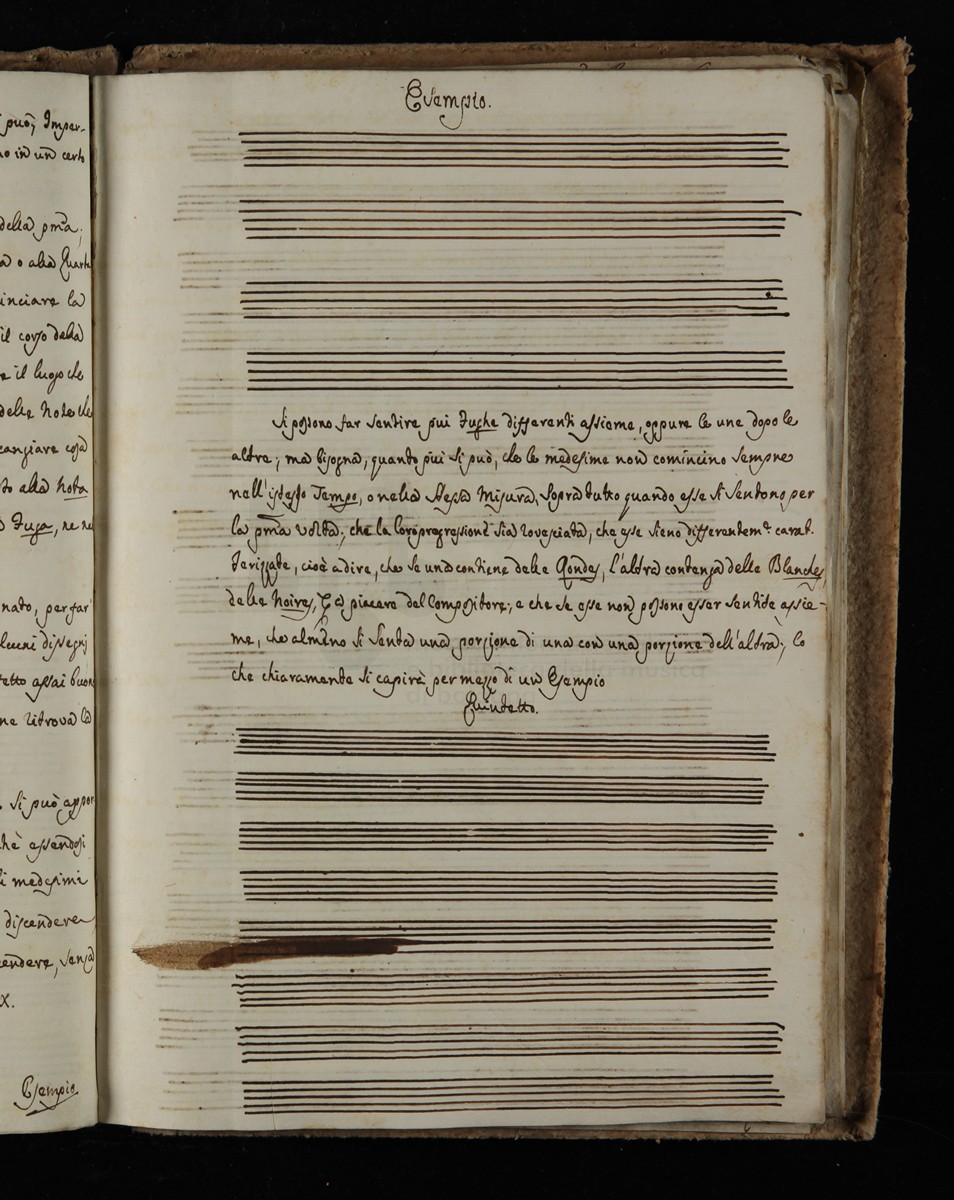 può, Imper-
no in un certo
della pma.
a o alla Quarta
inciare la
il corso della
e il luogo che
delle Note che
cangiare cosa
to alla Nota
Fuga, ne ne
nato, per far
lcuni dissegni
etto assai buon
ne ritrova la
. Si può appor
hè essendosi
i medesimi
discendere
cendere, senza
x.
Esempio
Esempio.
Si possono far sentire più Fughe differenti assieme, oppure le une dopo le
altre; ma bisogna, quanto più si può, che le medesime non comincino sempre
nell'istesso Tempo, o nella stessa Misura, sopra tutto quando esse si sentono per
la pma volta; che la loro progressione sia rovesciata, che esse sieno differentemte carat-
terizzate, cioè a dire, che se una contiene delle Rondes, l'altra contenga delle Blanches,
delle Noires, &c a piacere del Compositore; e che se esse non possono esser sentite assie-
me, che almeno si senta una porzione di una con una porzione dell'altra; lo
che chiaramente si capirà per mezzo di un Esempio
Quintetto.
della musica